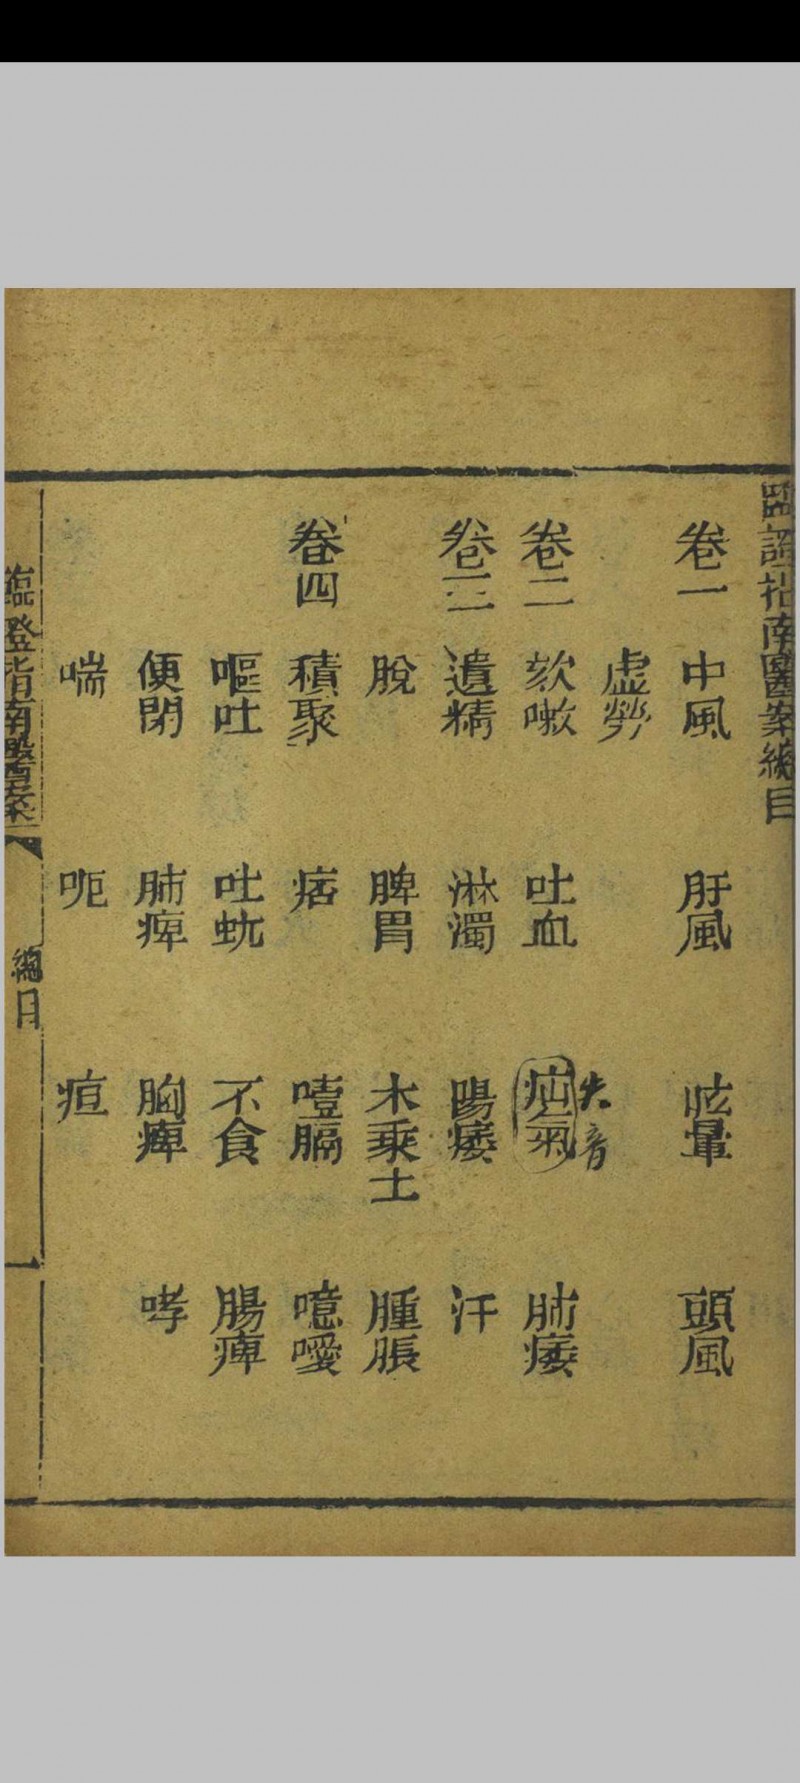 臨證指南醫案總目
卷一 中風 肝風 眩暈 頭風
虛勞
卷二 欬嗽 吐血 疝氣 肺痿
失音
卷三 遺精 淋濁 陽痿 汗
脫 脾胃 木乘土 腫脹
卷四 積聚 痞 噎膈 噫噯
嘔吐 吐蚘 不食 腸痺
便閉 肺痺 胸痺 哮
喘 呃 疸
臨證指南醫案 總目 一